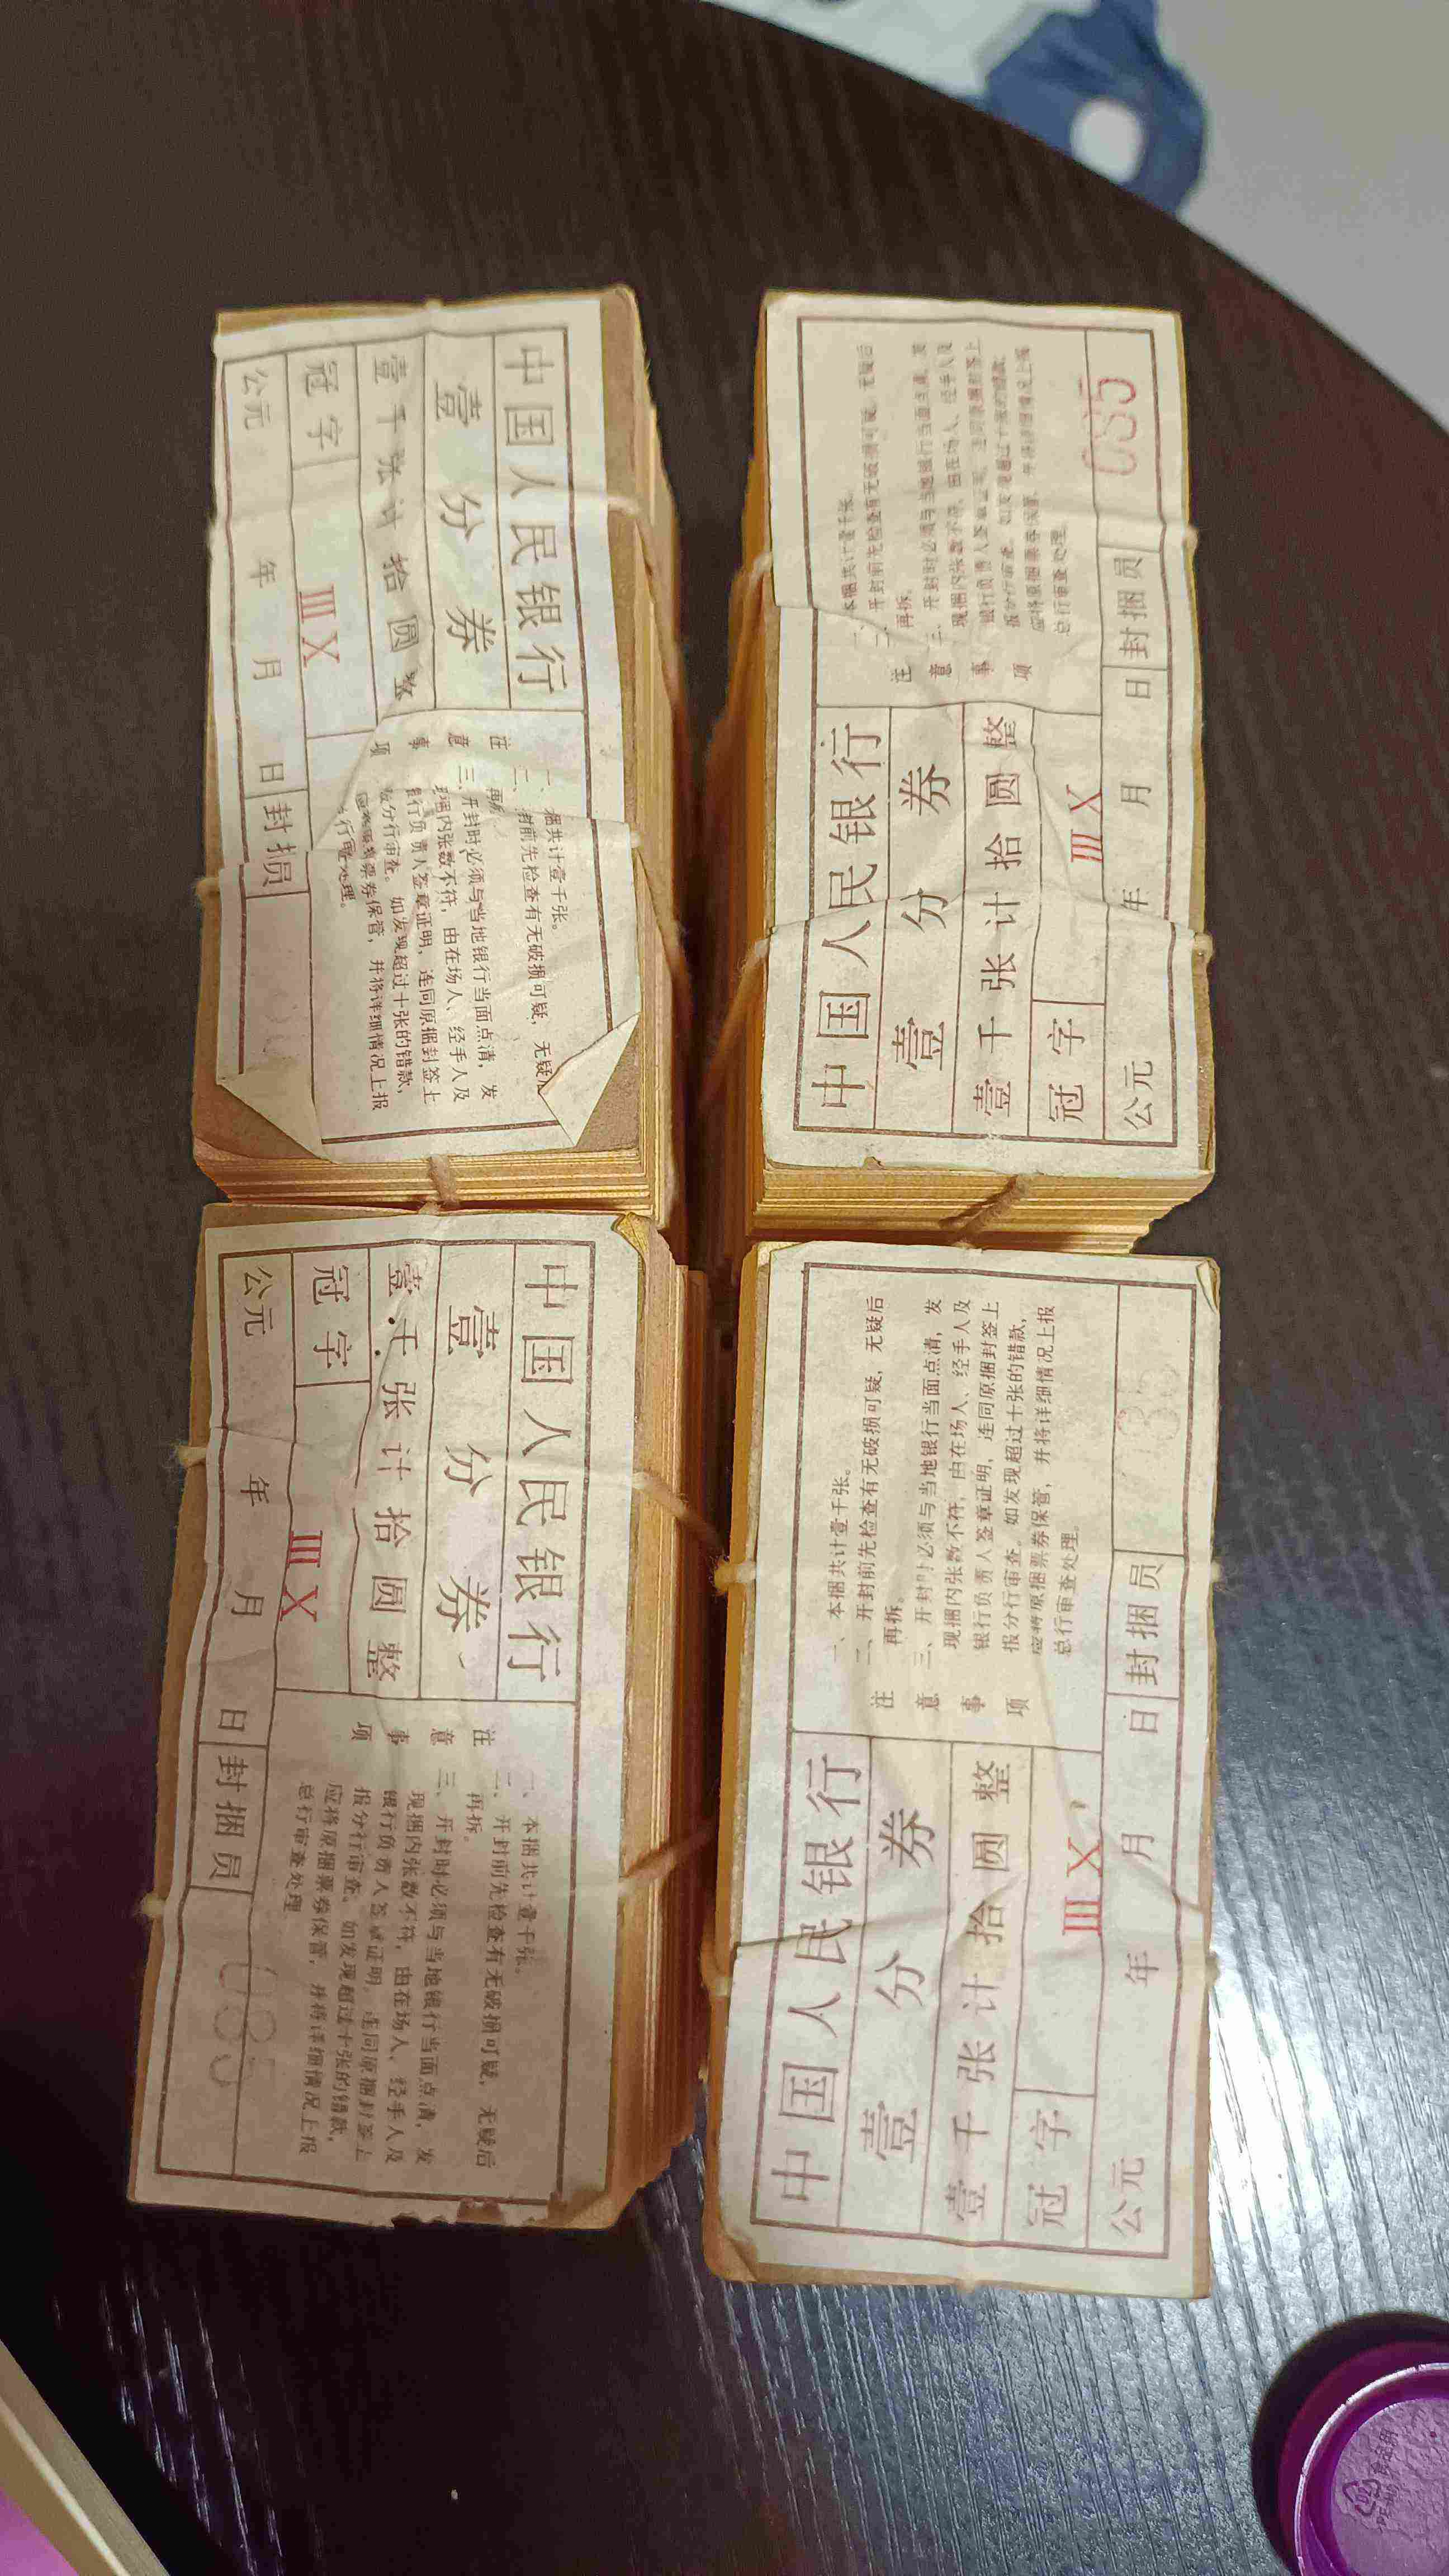 中国人民银行
壹分券
壹千张计拾圆整
冠字 ⅢⅩ
公元 年 月 日 封捆员
注意事项
捆共计壹千张。
前先检查有无破损可疑，无疑后
再拆
三、开封时必须与当地银行当面点清，发
现捆内张数不符，由在场人、经手人及
银行负责人签章证明，连同原捆封签上
报分行审查。如发现超过十张的错款，
票券保管，并将详细情况上报
行审查处理。
中国人民银行
壹分券
壹千张计拾圆整
冠字 ⅢⅩ
公元 年 月 日 封捆员 035
注意事项
一、本捆共计壹千张。
二、开封前先检查有无破损可疑，无疑后
再拆。
三、开封时必须与当地银行当面点清，发
现捆内张数不符，由在场人、经手人及
银行负责人签章证明，连同原捆封签上
报分行审查。如发现超过十张的错款，
应将原捆票券保管，并将详细情况上报
总行审查处理。
中国人民银行
壹分券
壹千张计拾圆整
冠字 ⅢⅩ
公元 年 月 日 封捆员 035
注意事项
一、本捆共计壹千张。
二、开封前先检查有无破损可疑，无疑后
再拆。
三、开封时必须与当地银行当面点清，发
现捆内张数不符，由在场人、经手人及
银行负责人签章证明，连同原捆封签上
报分行审查。如发现超过十张的错款，
应将原捆票券保管，并将详细情况上报
总行审查处理
中国人民银行
壹分券
壹千张计拾圆整
冠字 ⅢⅩ
公元 年 月 日 封捆员
注意事项
一、本捆共计壹千张。
二、开封前先检查有无破损可疑，无疑后
再拆。
三、开封时必须与当地银行当面点清，发
现捆内张数不符，由在场人、经手人及
银行负责人签章证明，连同原捆封签上
报分行审查。如发现超过十张的错款，
应将原捆票券保管，并将详细情况上报
总行审查处理